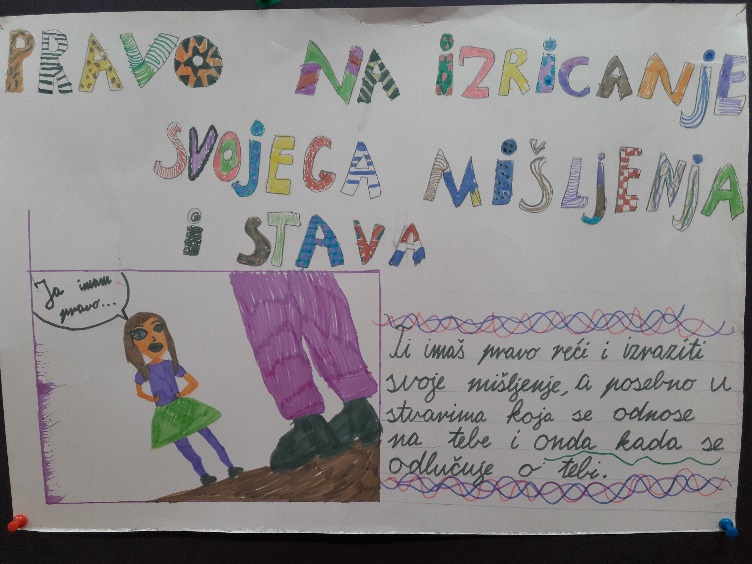 PRAVO NA IZRICANJE
SVOJEGA MIŠLJENJA
I STAVA
Ja imam
pravo...
Ti imaš pravo reći i izraziti
svoje mišljenje, a posebno u
stvarima koja se odnose
na tebe i onda kada se
odlučuje o tebi.